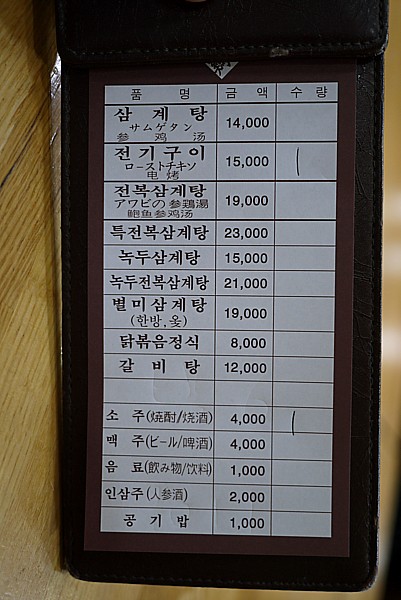 품 명 금 액 수 량
삼 계 탕 14,000
サムゲタン
参 鸡 汤
전기구이 15,000
ローストチキソ
电 烤
전복삼계탕 19,000
アワビの 参鶏湯
鲍鱼参鸡汤
특전복삼계탕 23,000
녹두삼계탕 15,000
녹두전복삼계탕 21,000
별미삼계탕 19,000
(한방,옻)
닭볶음정식 8,000
갈 비 탕 12,000
소 주(焼酎/烧酒) 4,000
맥 주(ビール/啤酒) 4,000
음 료(飲み物/饮料) 1,000
인삼주(人参酒) 2,000
공 기 밥 1,000